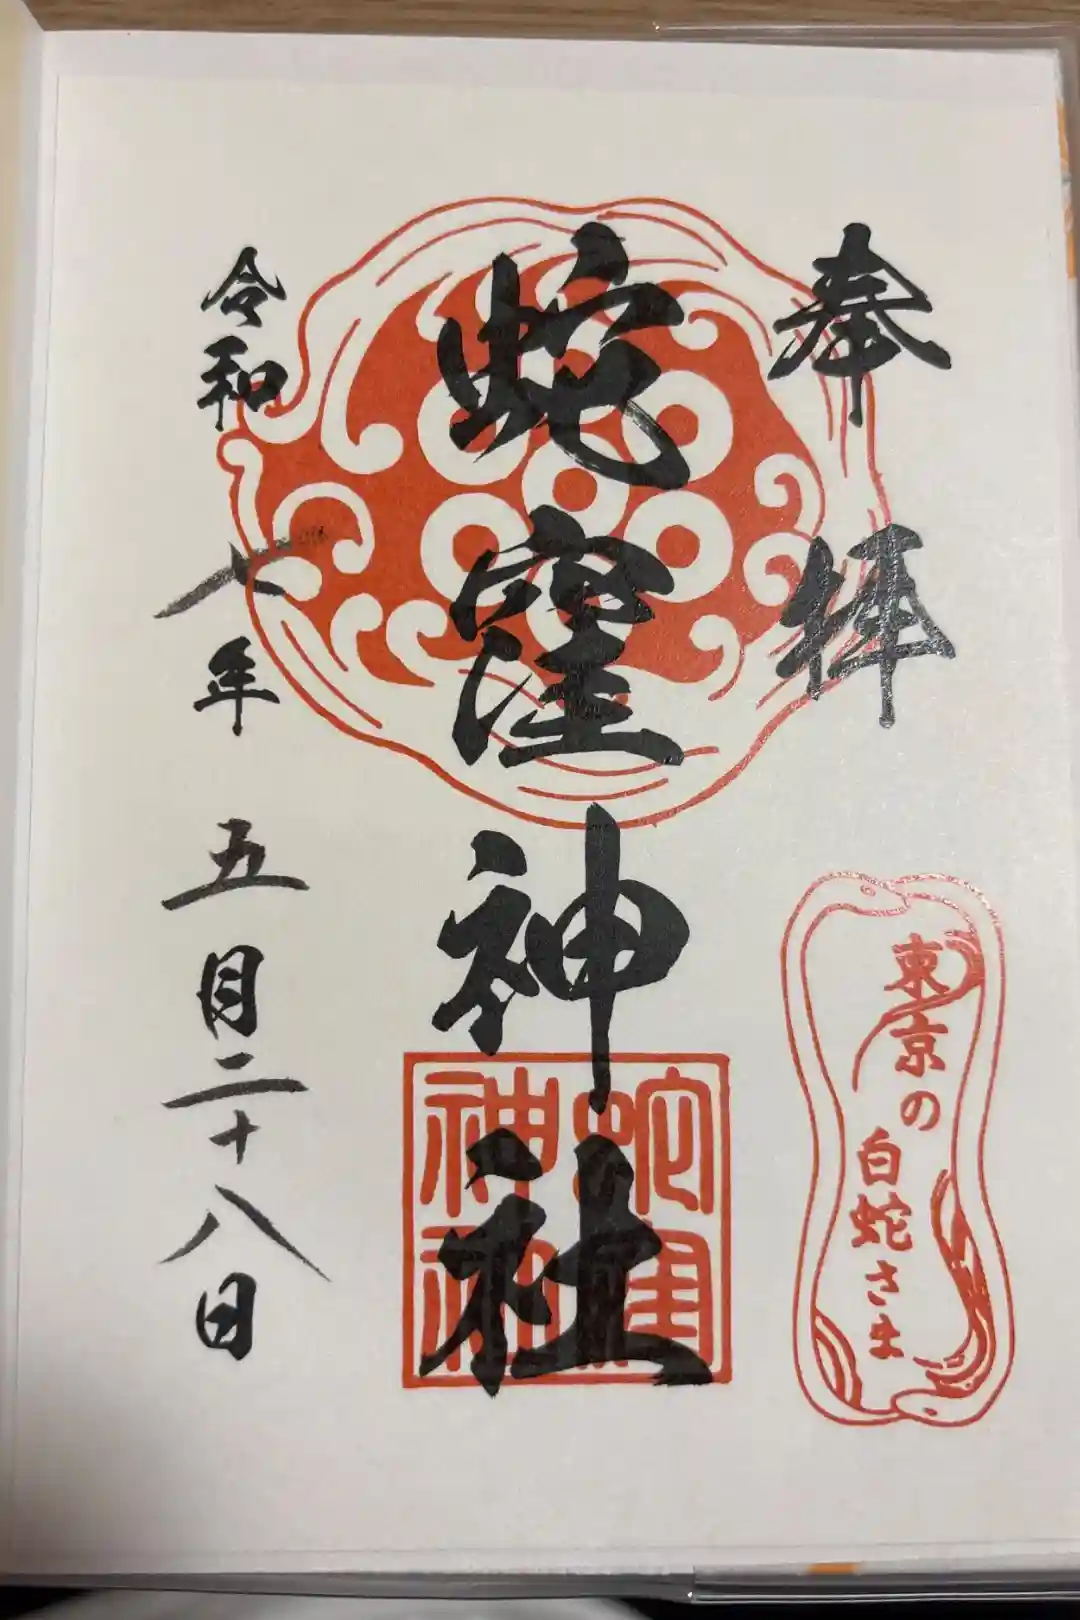 奉拝
東京の
白蛇さま
蛇窪神社
蛇窪
神社
令和七年五月二十八日